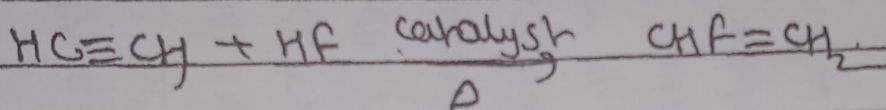 HC≡CH + HF catalyst CHF=CH₂
Δ